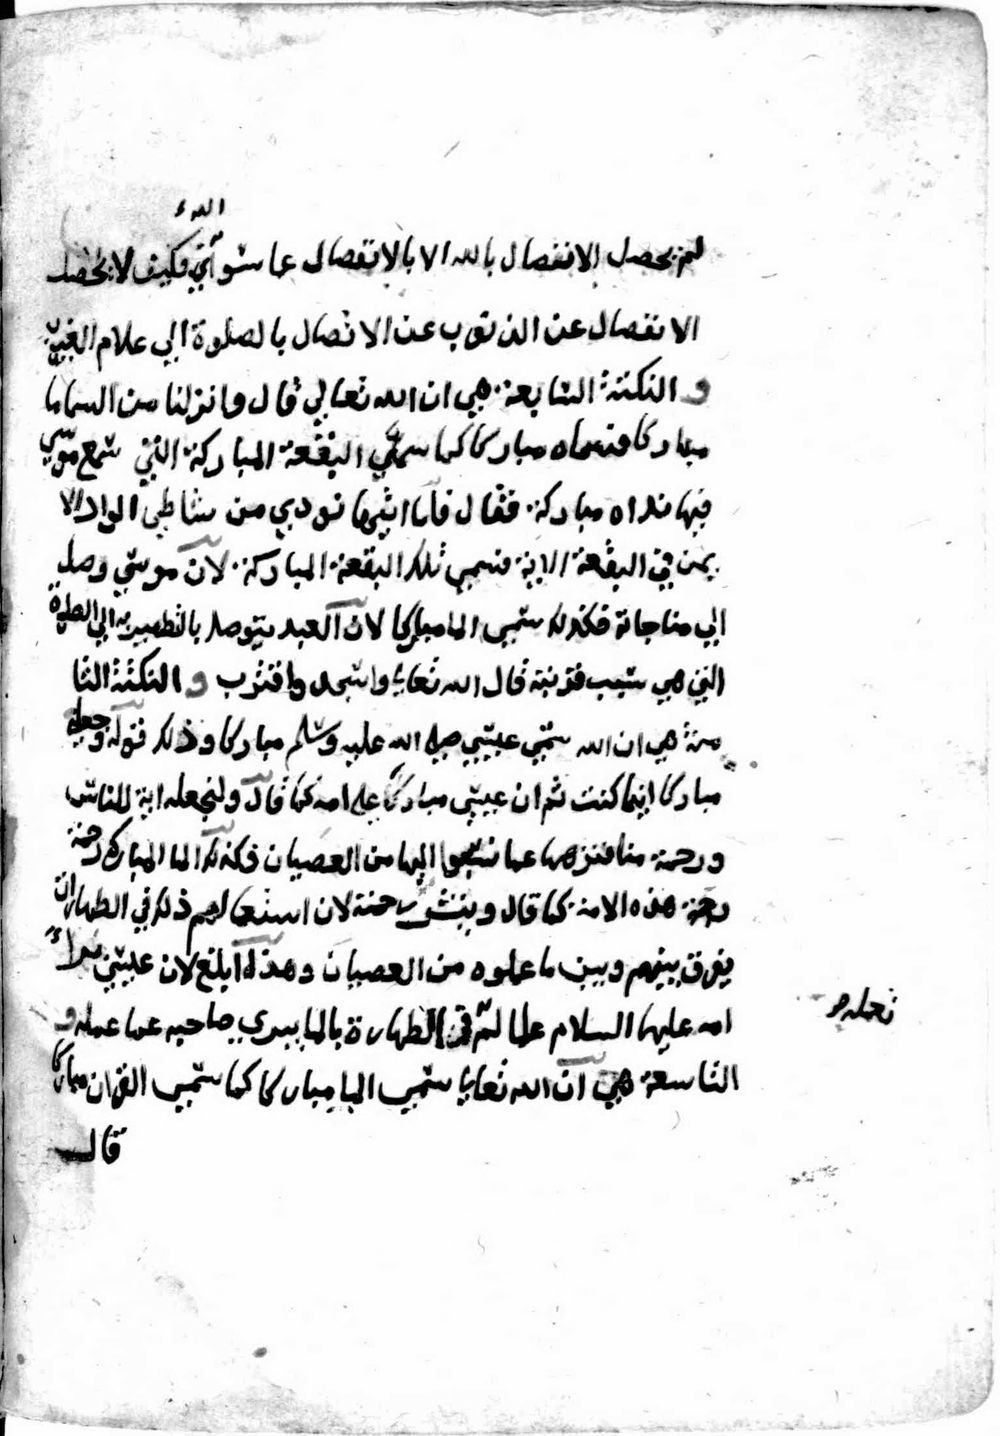 الله
لم يحصل الاتصال بالله الا بالانفصال عما سوى فكيف لا يحصل
الانفصال عن الذنوب عند الاتصال بالصلوة الي علام الغيوب
و النكتة السابعة هي ان الله تعالي قال وانزلنا من السما ما
مباركا فسماه مباركا كما سمي البقعة المباركة التي سمع موسي
فيها نداه مباركة فقال فلما اتيها نودي من شاطي الواد الا
يمن في البقعة الاية فسمي تلك البقعة المباركة لان موسي وصل
الي مناجاته فكذلك سمي الما مباركا لان العبد يتوصل بالتطهير به الي الصلوة
التي هي سبب قربته قال الله تعالي واسجد واقترب و النكتة الثا
منة هي ان الله سمي عيسي صلي الله عليه وسلم مباركا وذلك قوله وجعلني
مباركا اينما كنت ثم ان عيسي مباركا علي امه كما قال ولنجعله اية للناس
ورحمة منا فنزهها عما نسبوا اليها من العصيان فكذلك الما المبارك رحمة
رحمة هذه الامة كما قال وينشر رحمته لان استعمالهم ذلك في الطهارات
يفرق بينهم وبين ما عملوه من العصيان وهذا ابلغ لان عيسي براء
امه عليها السلام عما لم الطهارة بالما يبري صاحبه عما عمله و
التاسعة هي ان الله تعالي سمي الما مباركا كما سمي القران مباركا
قال
تعمله ص